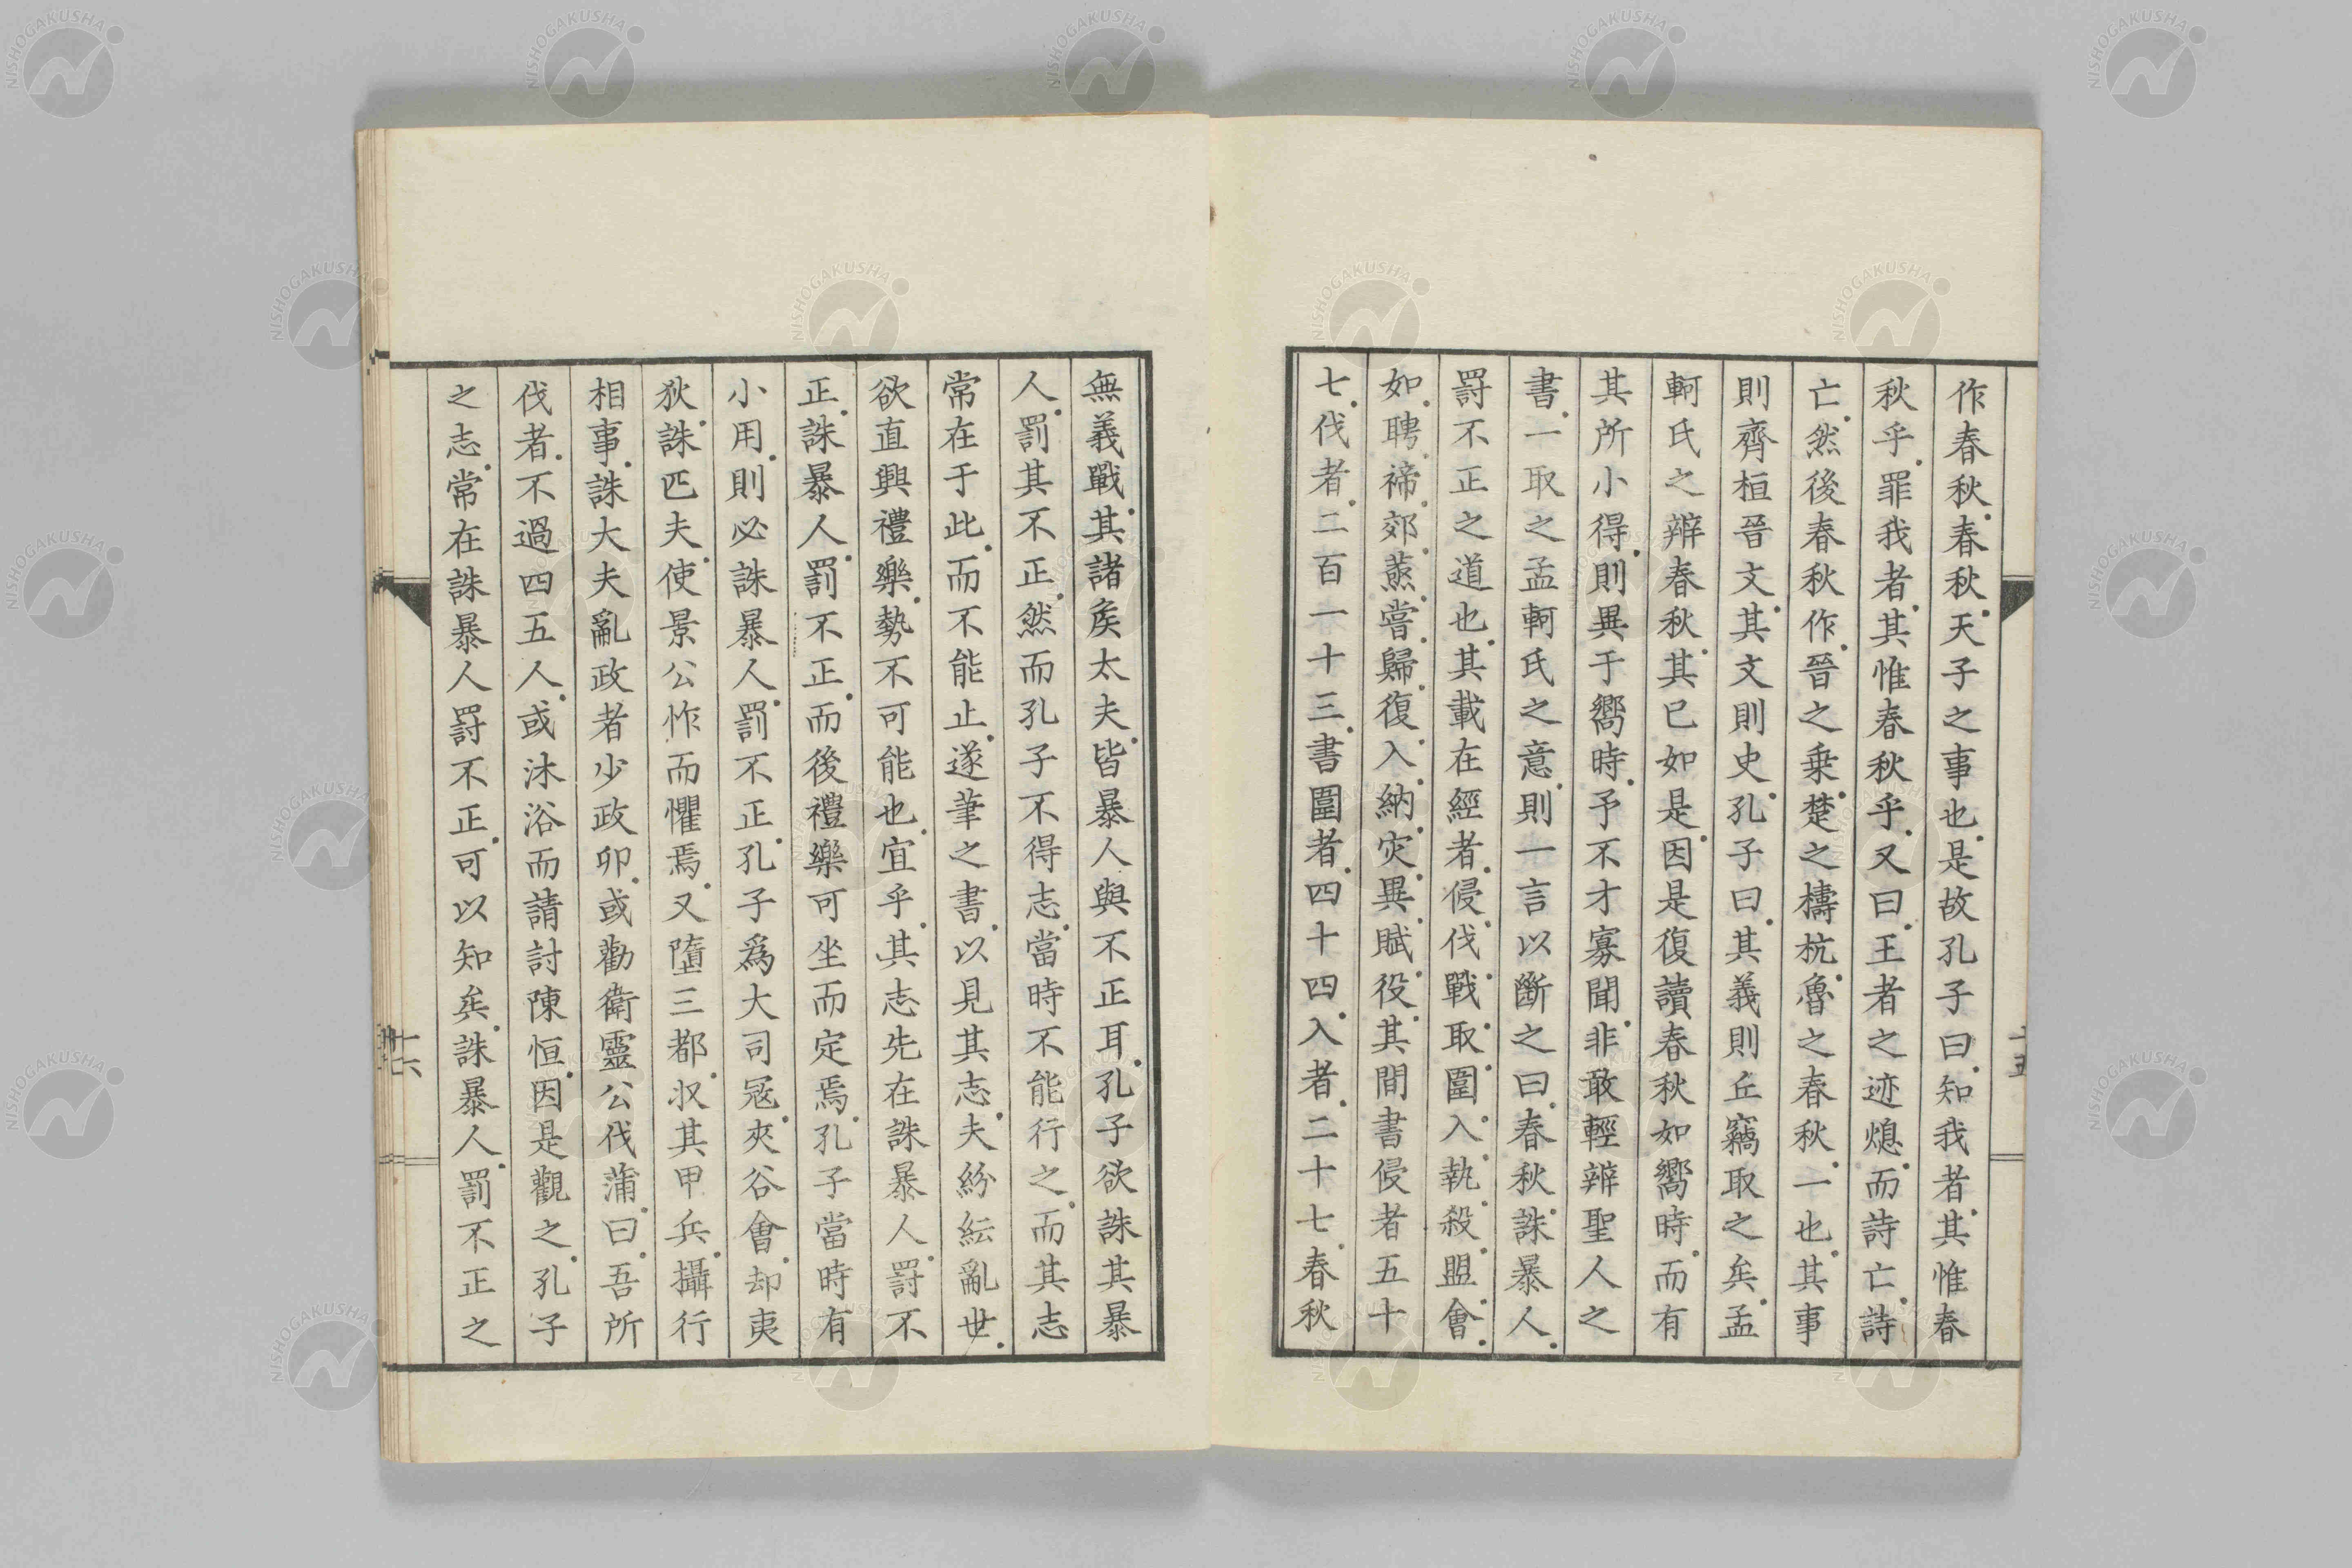 作春秋春秋天子之事也是故孔子曰知我者其惟春
秋乎罪我者其惟春秋乎又曰王者之迹熄而詩亡詩
亡然後春秋作晉之乗楚之檮杌魯之春秋一也其事
則齊桓晉文其文則史孔子曰其義則丘竊取之矣孟
軻氏之辨春秋其已如是因是復讀春秋如嚮時而有
其所小得則異于嚮時予不才寡聞非敢輕辨聖人之
書一取之孟軻氏之意則一言以斷之曰春秋誅暴人
罸不正之道也其載在經者侵伐戰取圍入執殺盟會
如聘禘郊烝嘗歸復入納灾異賦役其間書侵者五十
七伐者二百一十三書圍者四十四入者二十七春秋
無義戰其諸矦太夫皆暴人與不正耳孔子欲誅其暴
人罰其不正然而孔子不得志當時不能行之而其志
常在于此而不能止遂筆之書以見其志夫紛紜亂世
欲直興禮樂勢不可能也宜乎其志先在誅暴人罸不
正誅暴人罰不正而後禮樂可坐而定焉孔子當時有
小用則必誅暴人罰不正孔子爲大司冦夾谷會却夷
狄誅匹夫使景公怍而懼焉又墮三都収其甲兵攝行
相事誅大夫亂政者少政卯或勸衛靈公伐蒲曰吾所
伐者不過四五人或沐浴而請討陳恒因是觀之孔子
之志常在誅暴人罸不正可以知矣誅暴人罰不正之
十六
NISHOGAKUSHA